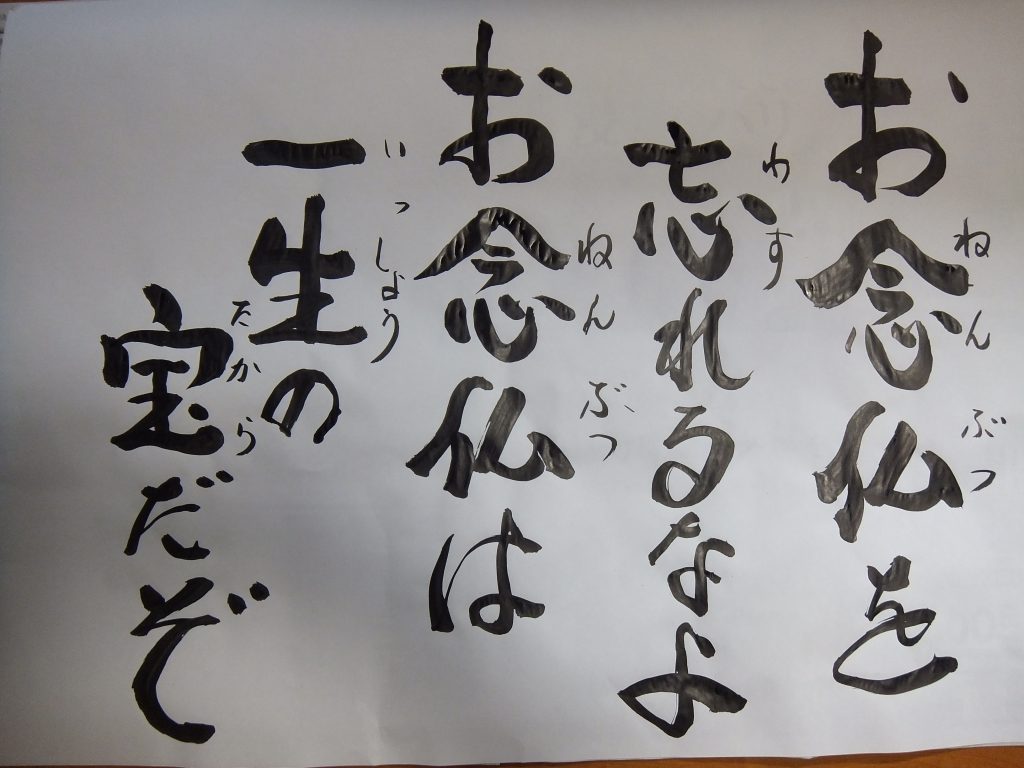 お念仏を
ねん ぶつ
忘れるなよ
わす
お念仏は
ねん ぶつ
一生の
いっしょう
宝だぞ
たから